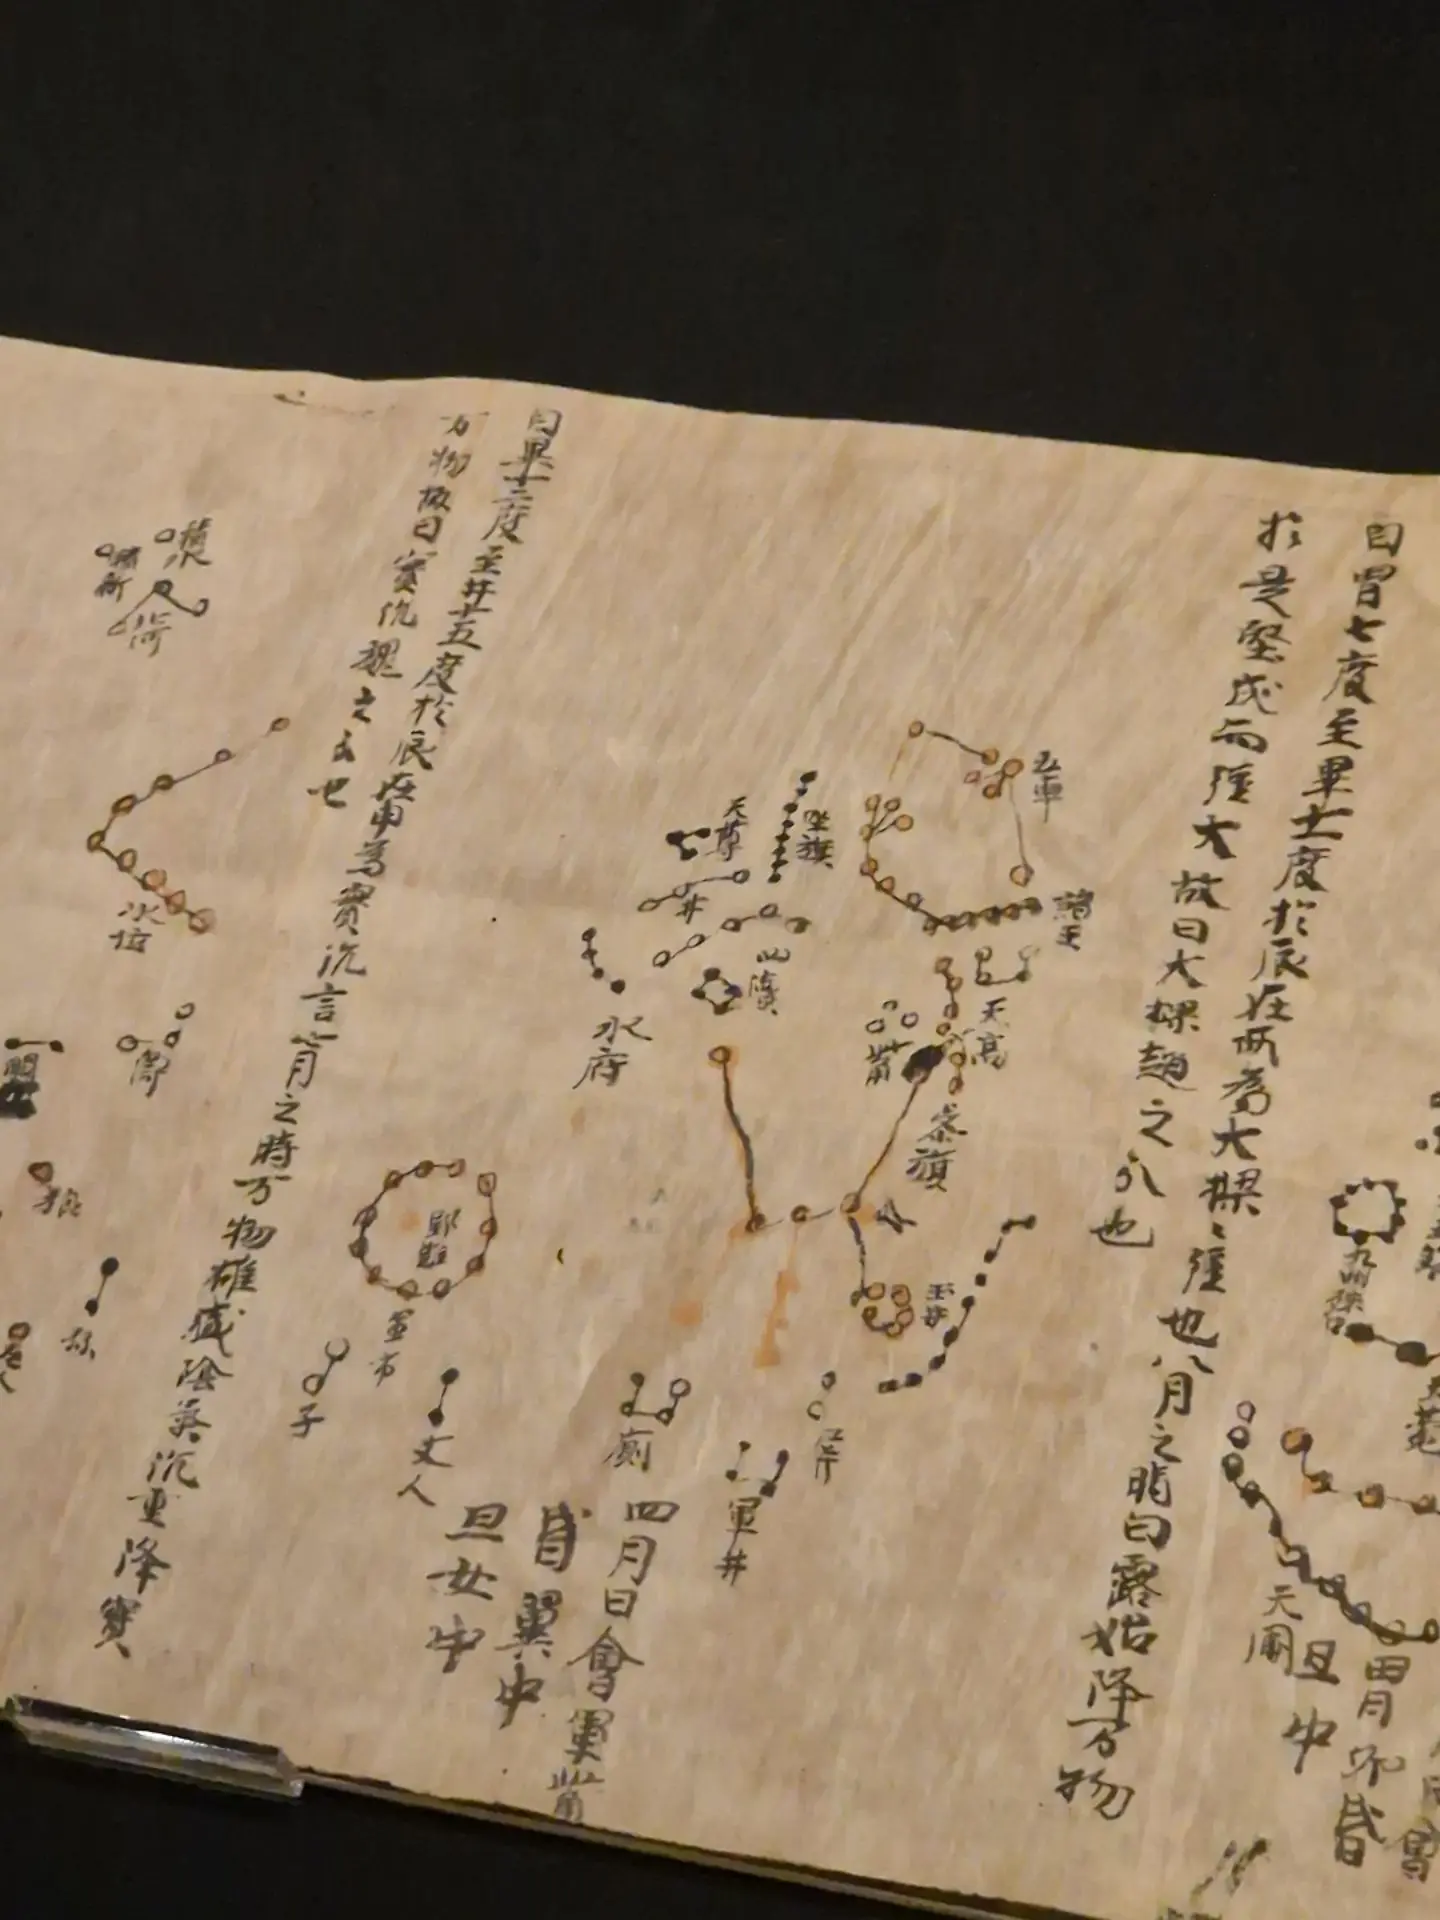 自胃七度至畢十一度於辰在酉為大梁〻強也八月之時白露始降万物
於是堅成而強大故曰大梁趙之分也
五車
諸王
天高
坐旗
天尊
井
四瀆
水府
觜
参旗
玉井
屏
軍井
廁
四月日會畢觜
昏翼中
旦女中
丈人
子
軍市
野雞
自畢十二度至井十五度於辰在申為實沉言七月之時万物雄盛陰氣沉重降實
万物故曰實沉魏之分也
積水
北河
水位
狼
老人
九州殊口
天囷
旦
中
胃
昴
昏
會